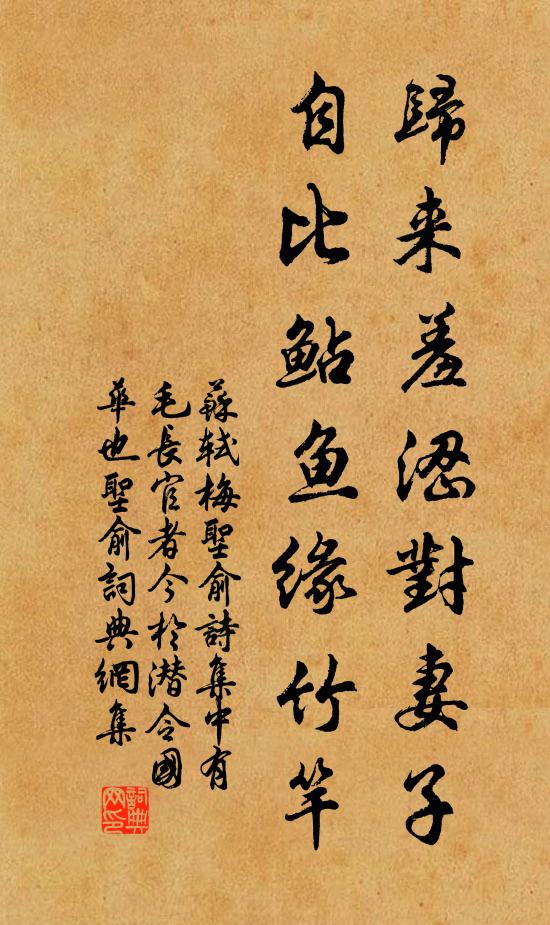 歸来羞澀對妻子
自比鮎魚緣竹竿
蘇軾梅聖俞詩集中有
毛長官者今於潛令國
華也聖俞詞典網集
詞典网印